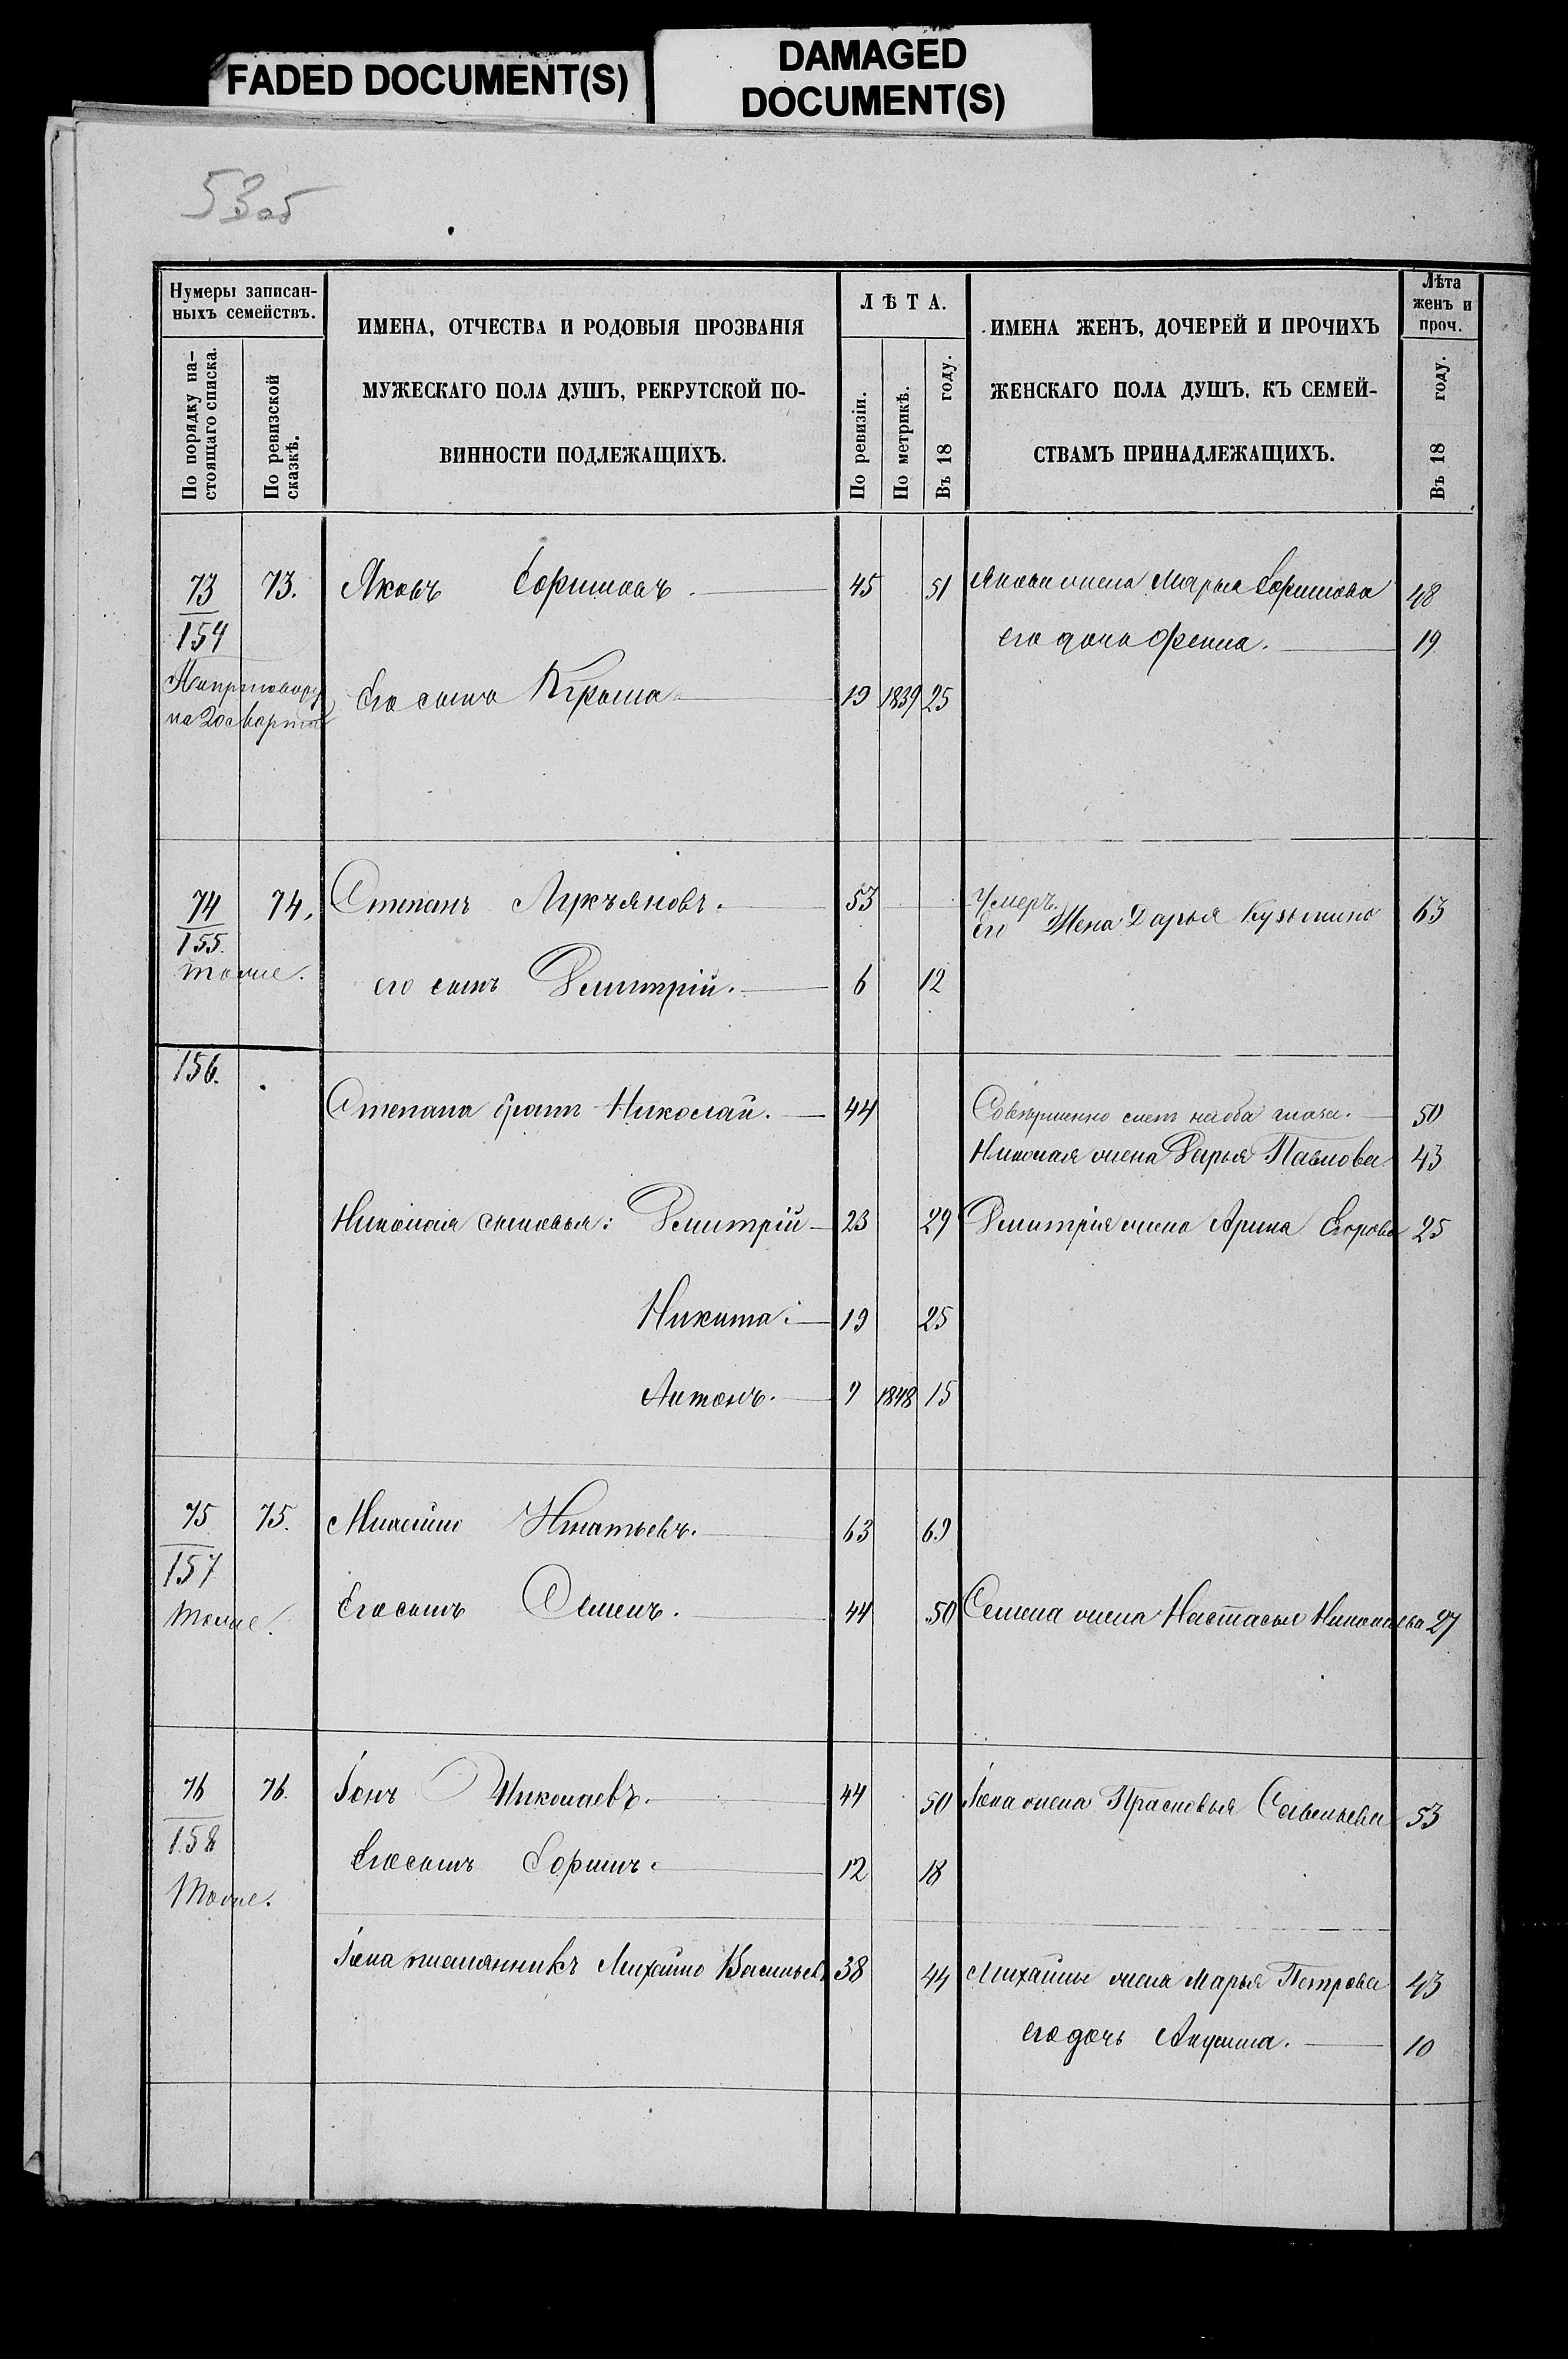 FADED DOCUMENT(S)
DAMAGED
DOCUMENT(S)
53об
Нумеры записан-
ныхъ семействъ.
По порядку на-
стоящаго списка.
По ревизской
сказкѣ.
ИМЕНА, ОТЧЕСТВА И РОДОВЫЯ ПРОЗВАНІЯ
МУЖЕСКАГО ПОЛА ДУШЪ, РЕКРУТСКОЙ ПО-
ВИННОСТИ ПОДЛЕЖАЩИХЪ.
ЛѢТА.
По ревизіи.
По метрикѣ.
Въ 18 году.
ИМЕНА ЖЕНЪ, ДОЧЕРЕЙ И ПРОЧИХЪ
ЖЕНСКАГО ПОЛА ДУШЪ, КЪ СЕМЕЙ-
СТВАМЪ ПРИНАДЛЕЖАЩИХЪ.
Лѣта
женъ и
проч.
Въ 18 году.
73 73. Яковъ 45 51 Якова жена Марья 48
154 его дочь 19
на 20е Марта Его сынъ 19 1839 25
74 74. Степанъ Лукъяновъ. 53 Умеръ.
155. Его Жена Дарья Кузьмина 63
тоже. его сынъ Дмитрій. 6 12
156.
Степана братъ Николай. 44 Совершенно слепъ на оба глаза. 50
Николая жена Дарья Павлова 43
Николая сыновья: Дмитрій 23 29 Дмитрія жена Арина Егорова 25
Никита. 19 25
Антонъ. 9 1848 15
75 75. Михайло Игнатьевъ. 63 69
157
тоже. Его сынъ Семенъ. 44 50 Семена жена Настасья Николаева 27
76 76. Іонъ Николаевъ. 44 50 Іона жена Прасковья Савельева 53
158
тоже. Его сынъ 12 18
Іона племянникъ Михайло Васильевъ 38 44 Михайлы жена Марья Петрова 43
его дочь Акулина. 10